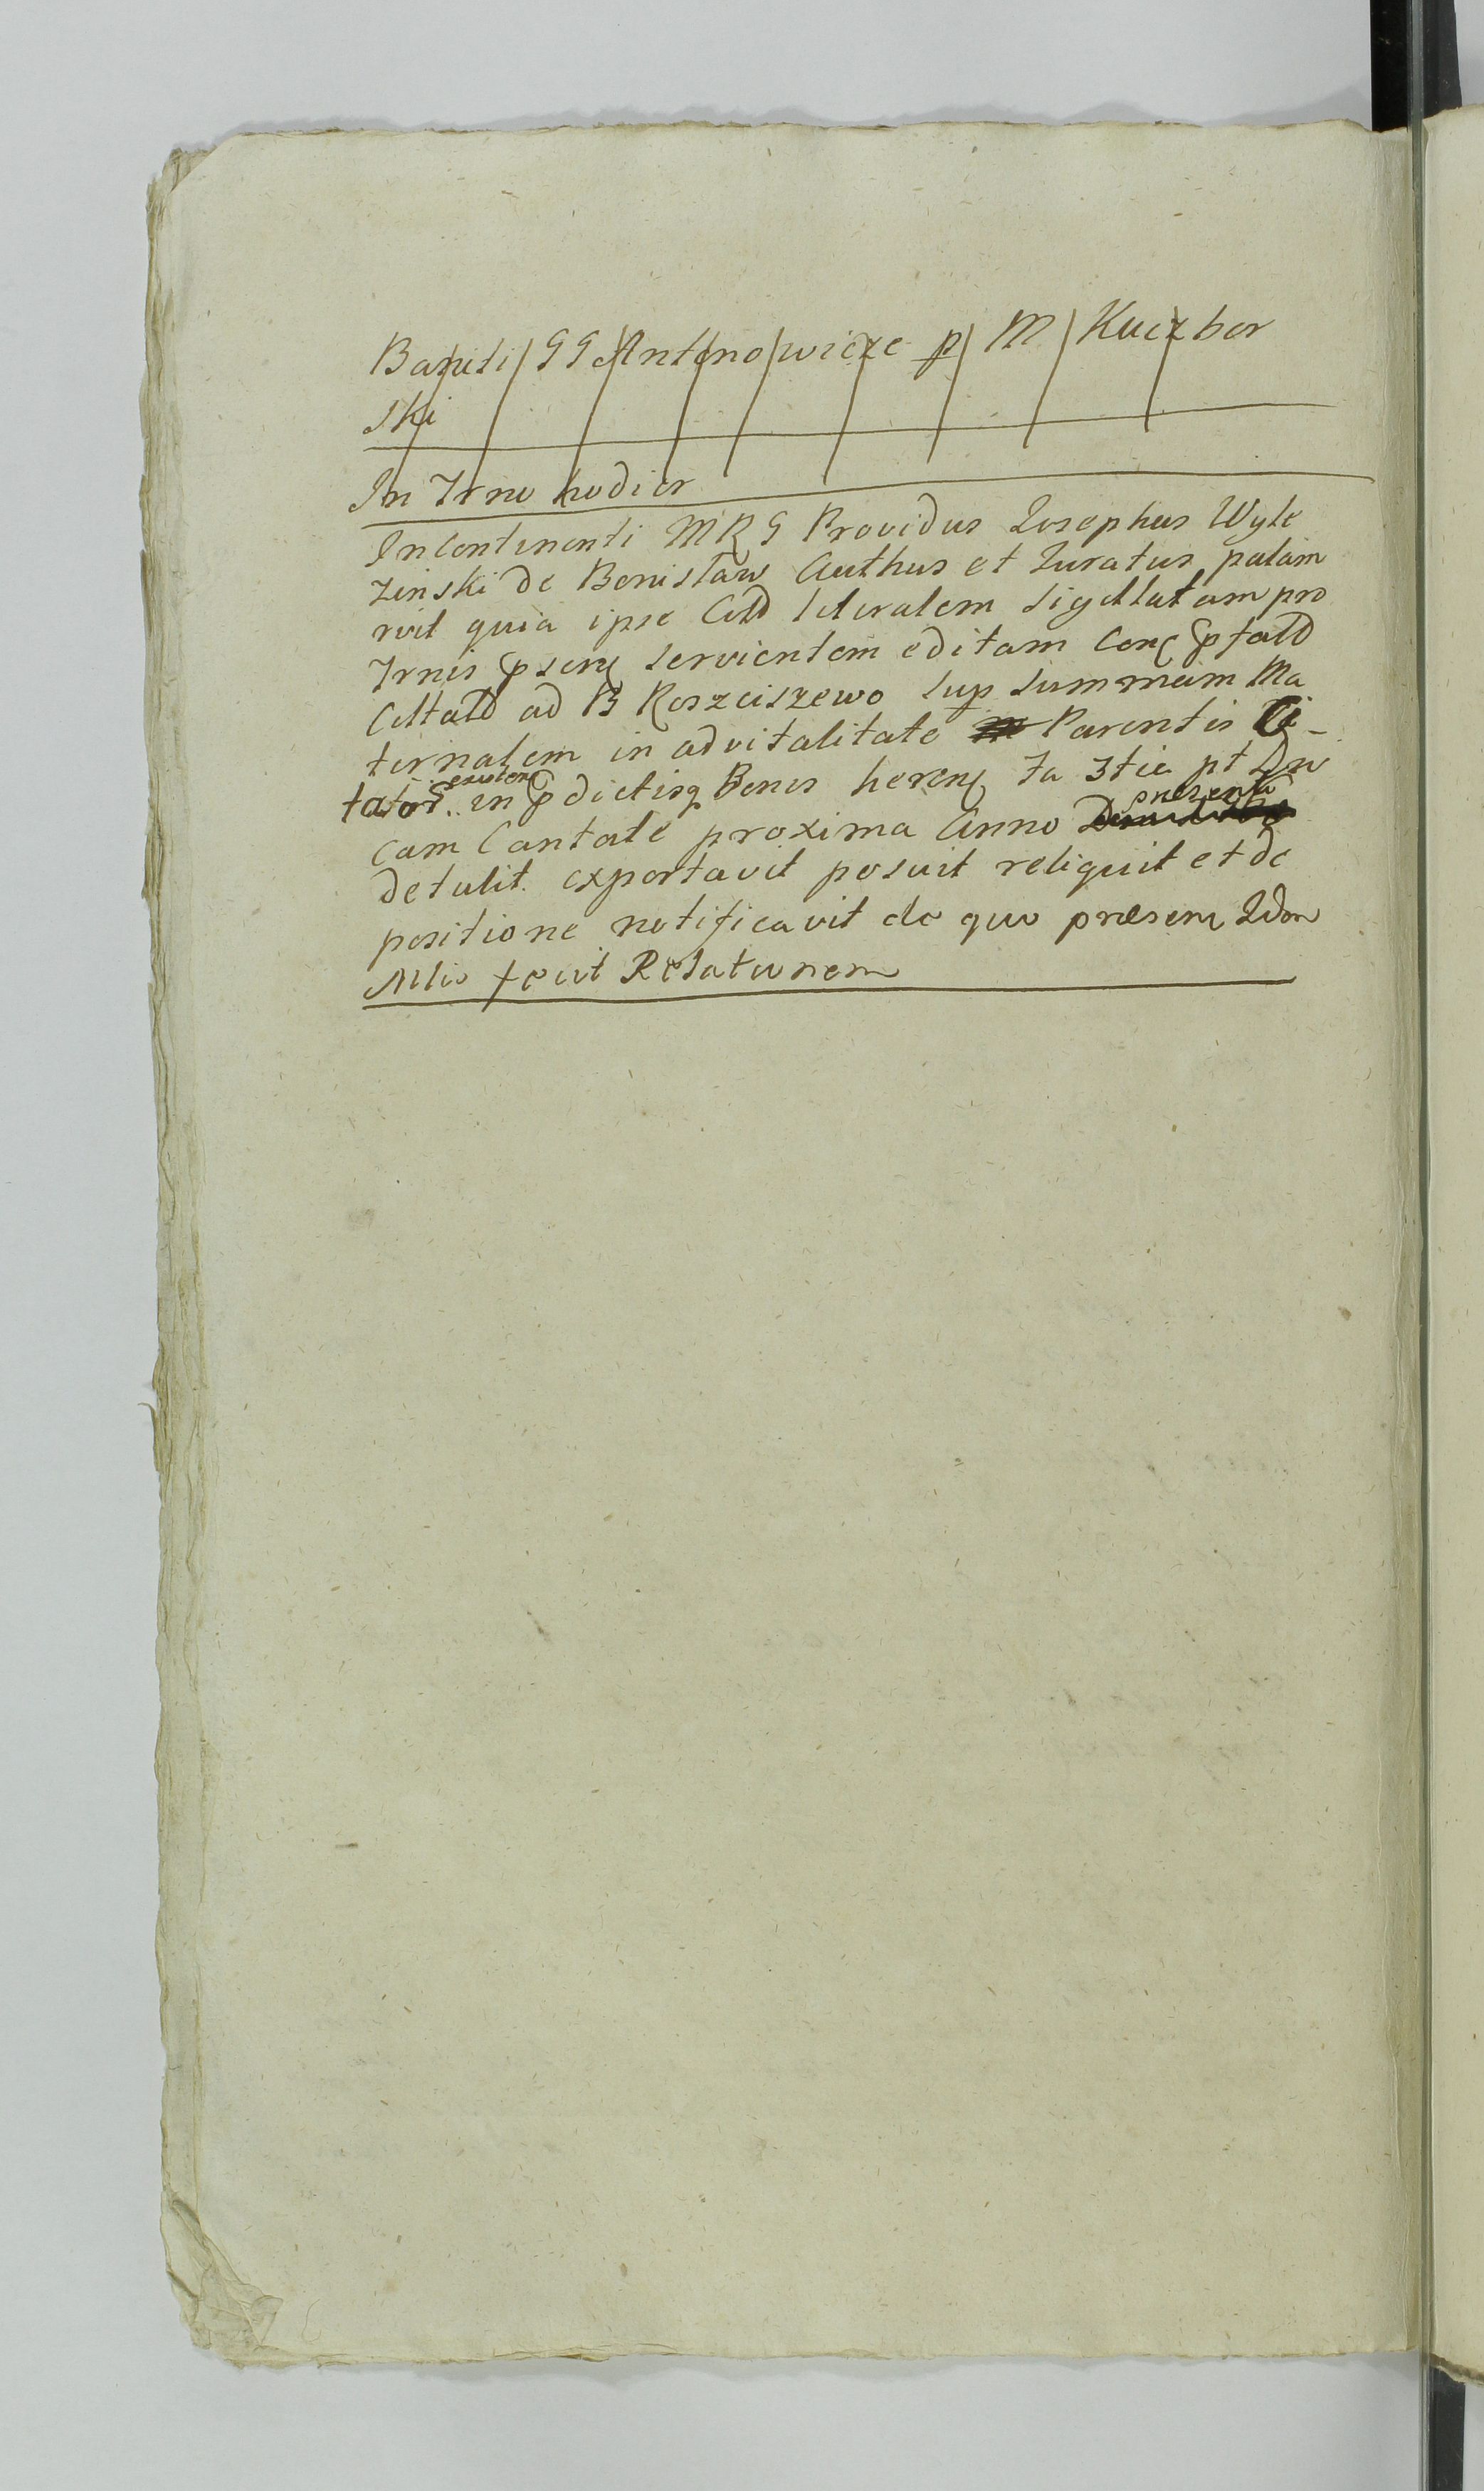 Baniti GG Antonowicze p M Kuczbor
ski
In Trno hodier
Incontinenti MRG Providus Iosephus Wyle
zinski de Bonislaw Authus et Iuratus palam
rvit quia ipse Citt literalem sigillatam pro
Trnis pseng servientem editam Conc
ad B Roszciszewo sup summam Ma
ternalem in advitalitate Parentis Ci-
tator existen in pdictisq Bonis hereng fa 3tia pt Dn
cam Cantate proxima Anno presenti
detulit exportavit posuit reliquit et de
positione notificavit de quo præsens Idm
Mlis fecit Relationem